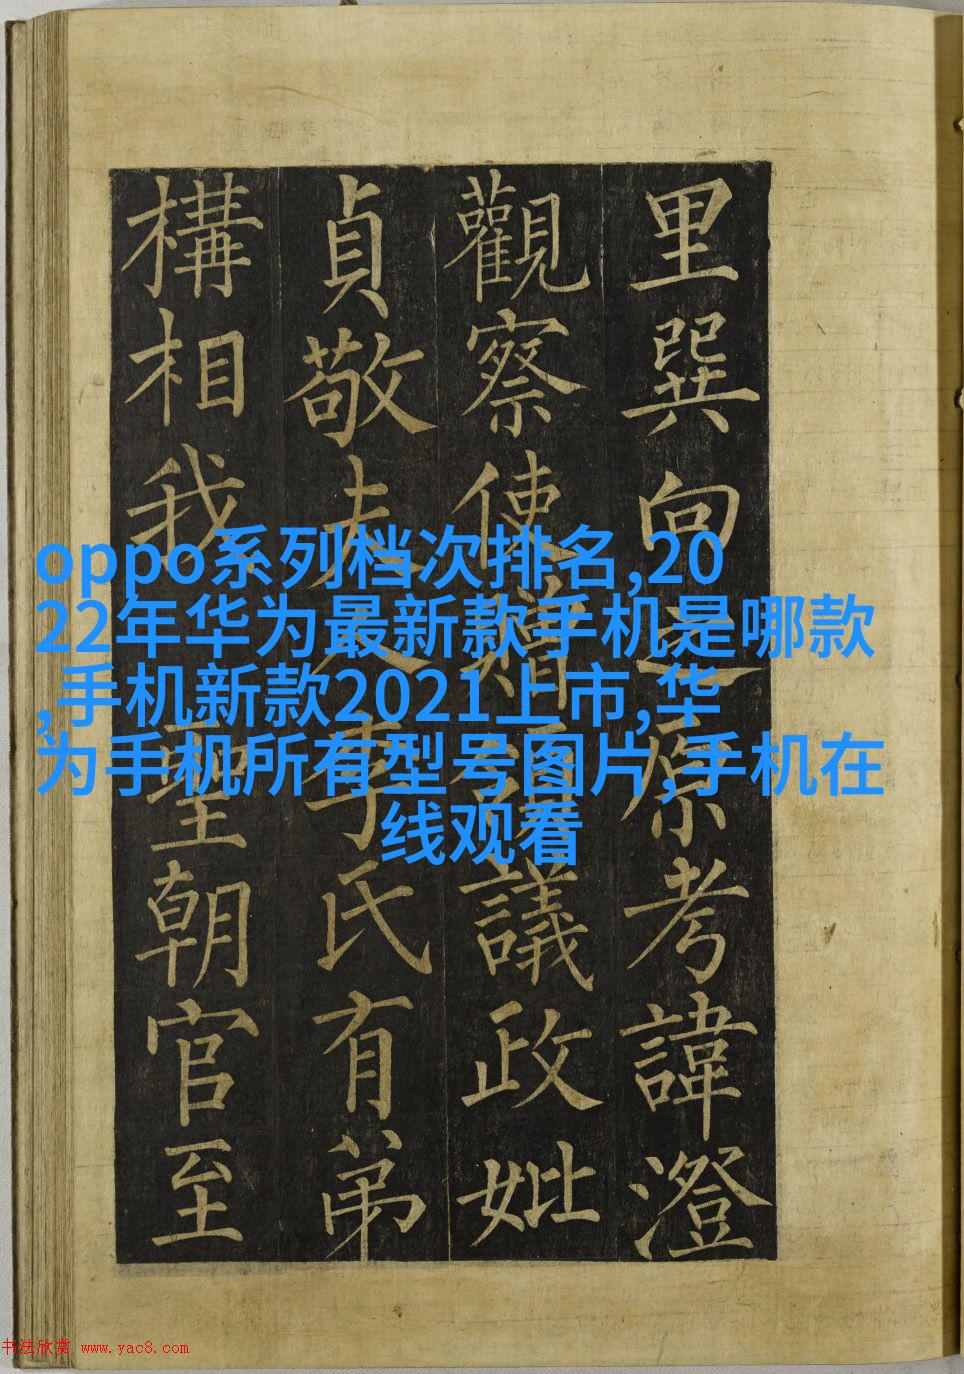 里巽向之原考諱澄
觀察使贈議政妣
貞敬夫人李氏有弟
構相我聖朝官至
oppo系列档次排名,20
22年华为最新款手机是哪款
,手机新款2021上市,华
为手机所有型号图片,手机在
线观看
书法欣赏 www.yac8.com